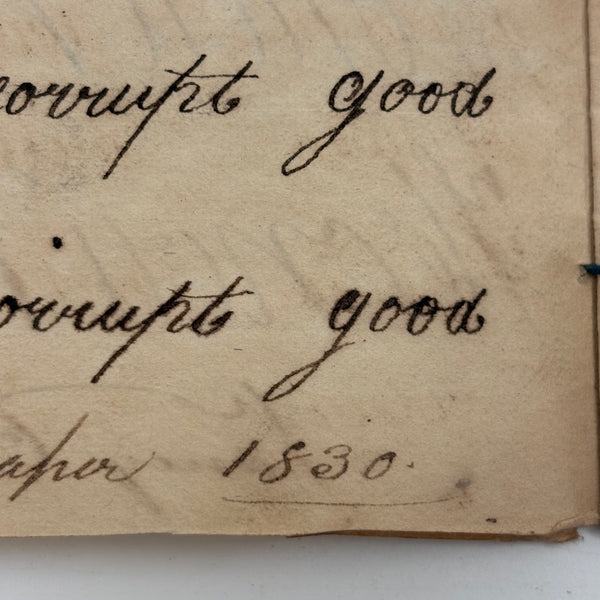 corrupt good
orrupt good
aper 1830.